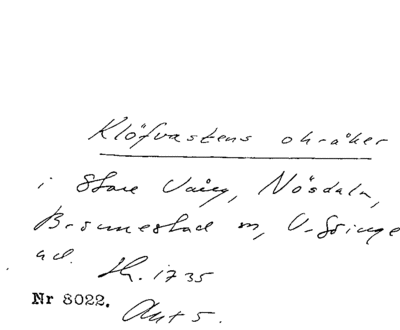 Klöfvastens ohråker
i Stora Vång, Nösdala,
Brönnestad sn, V. Göinge
hd. Sk. 1735
Nr 8022. Akt 5.